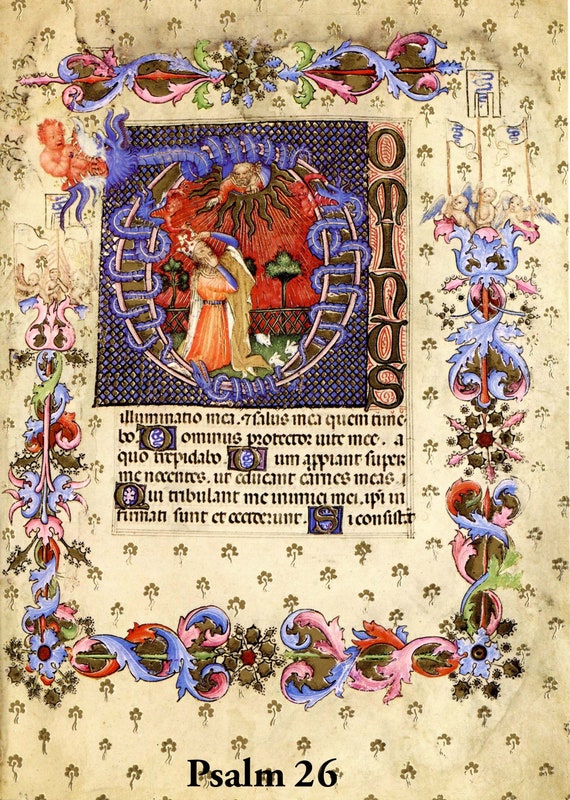 DOMINUS
illuminatio mea. ⁊ salus mea quem time
bo. Dominus protector uite mee. a
quo trepidabo Dum appiant super
me nocentes. ut educant carnes meas.
Qui tribulant me inimici mei. ipi in
firmati sunt et ceciderunt. Si consist
Psalm 26